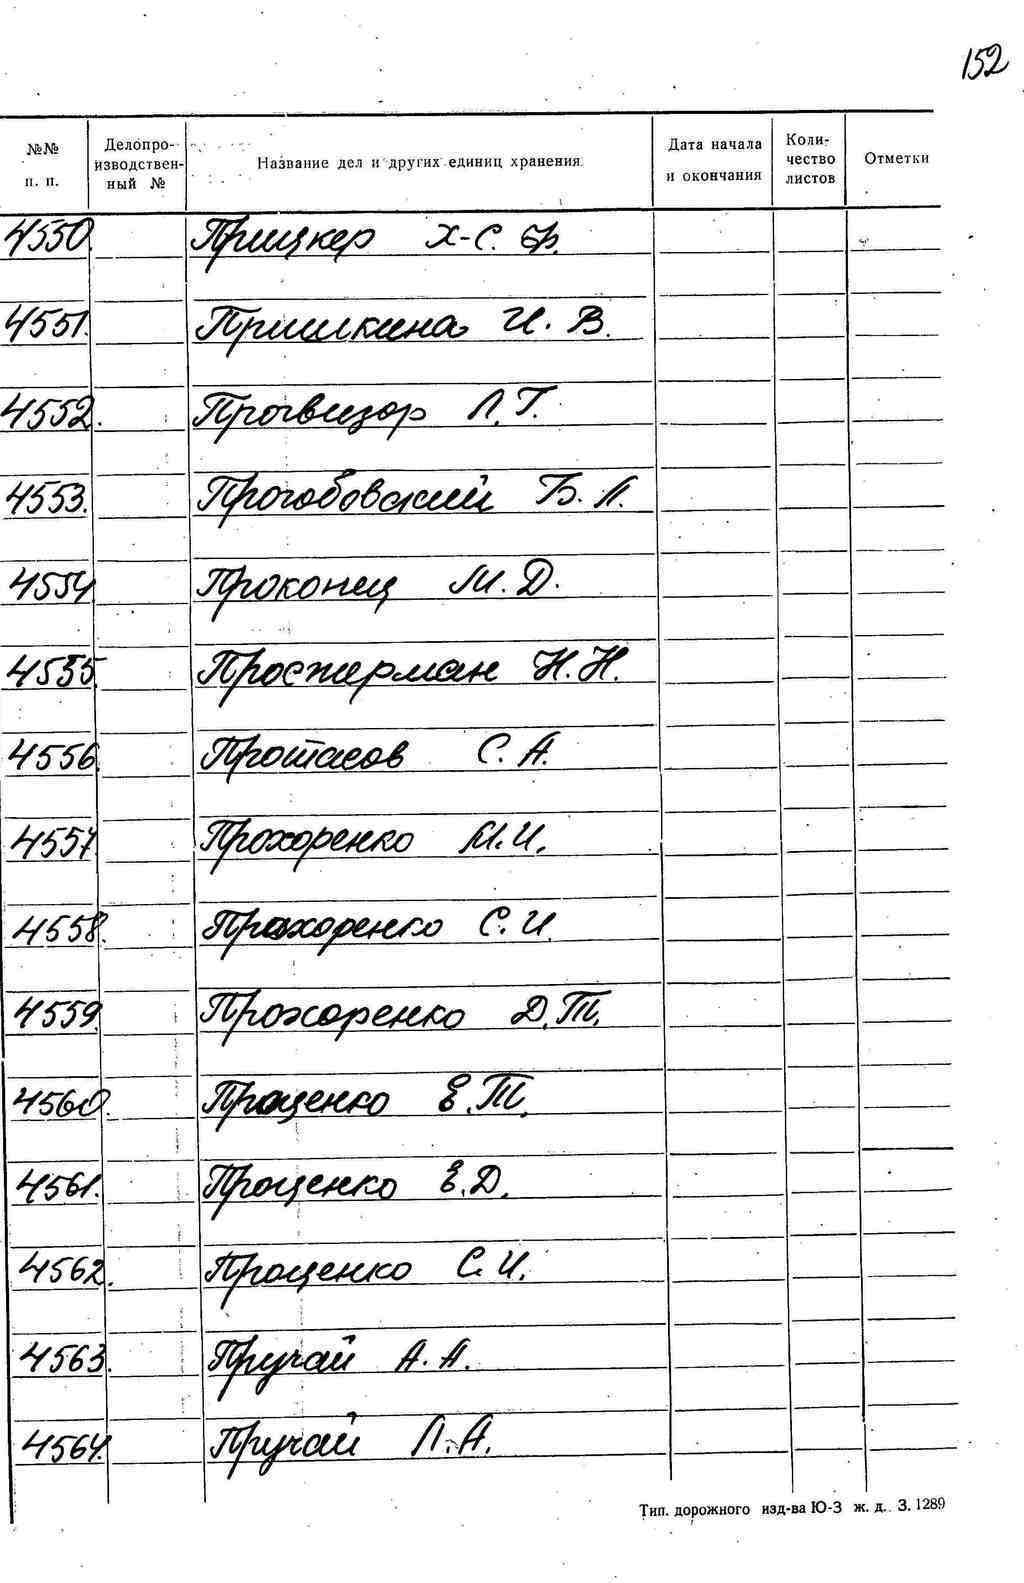 152
№№ п. п. Делопро-изводствен-ный № Название дел и других единиц хранения. Дата начала и окончания Коли-чество листов Отметки
4550. Прицкер Х-С. Ф.
4551. Пришкина И. В.
4552. Прогвизор Л. Г.
4553. Прогобовский Б. Л.
4554. Проконец М. Д.
4555. Просжерман Н. Н.
4556. Протасов С. А.
4557. Прохоренко М. И.
4558. Прохоренко С. И.
4559. Прохоренко Д. Т.
4560. Проценко Е. Т.
4561. Проценко Е. Д.
4562. Проценко С. И.
4563. Пручай А. А.
4564. Пручай Л. А.
Тип. дорожного изд-ва Ю-З ж. д. З. 1289